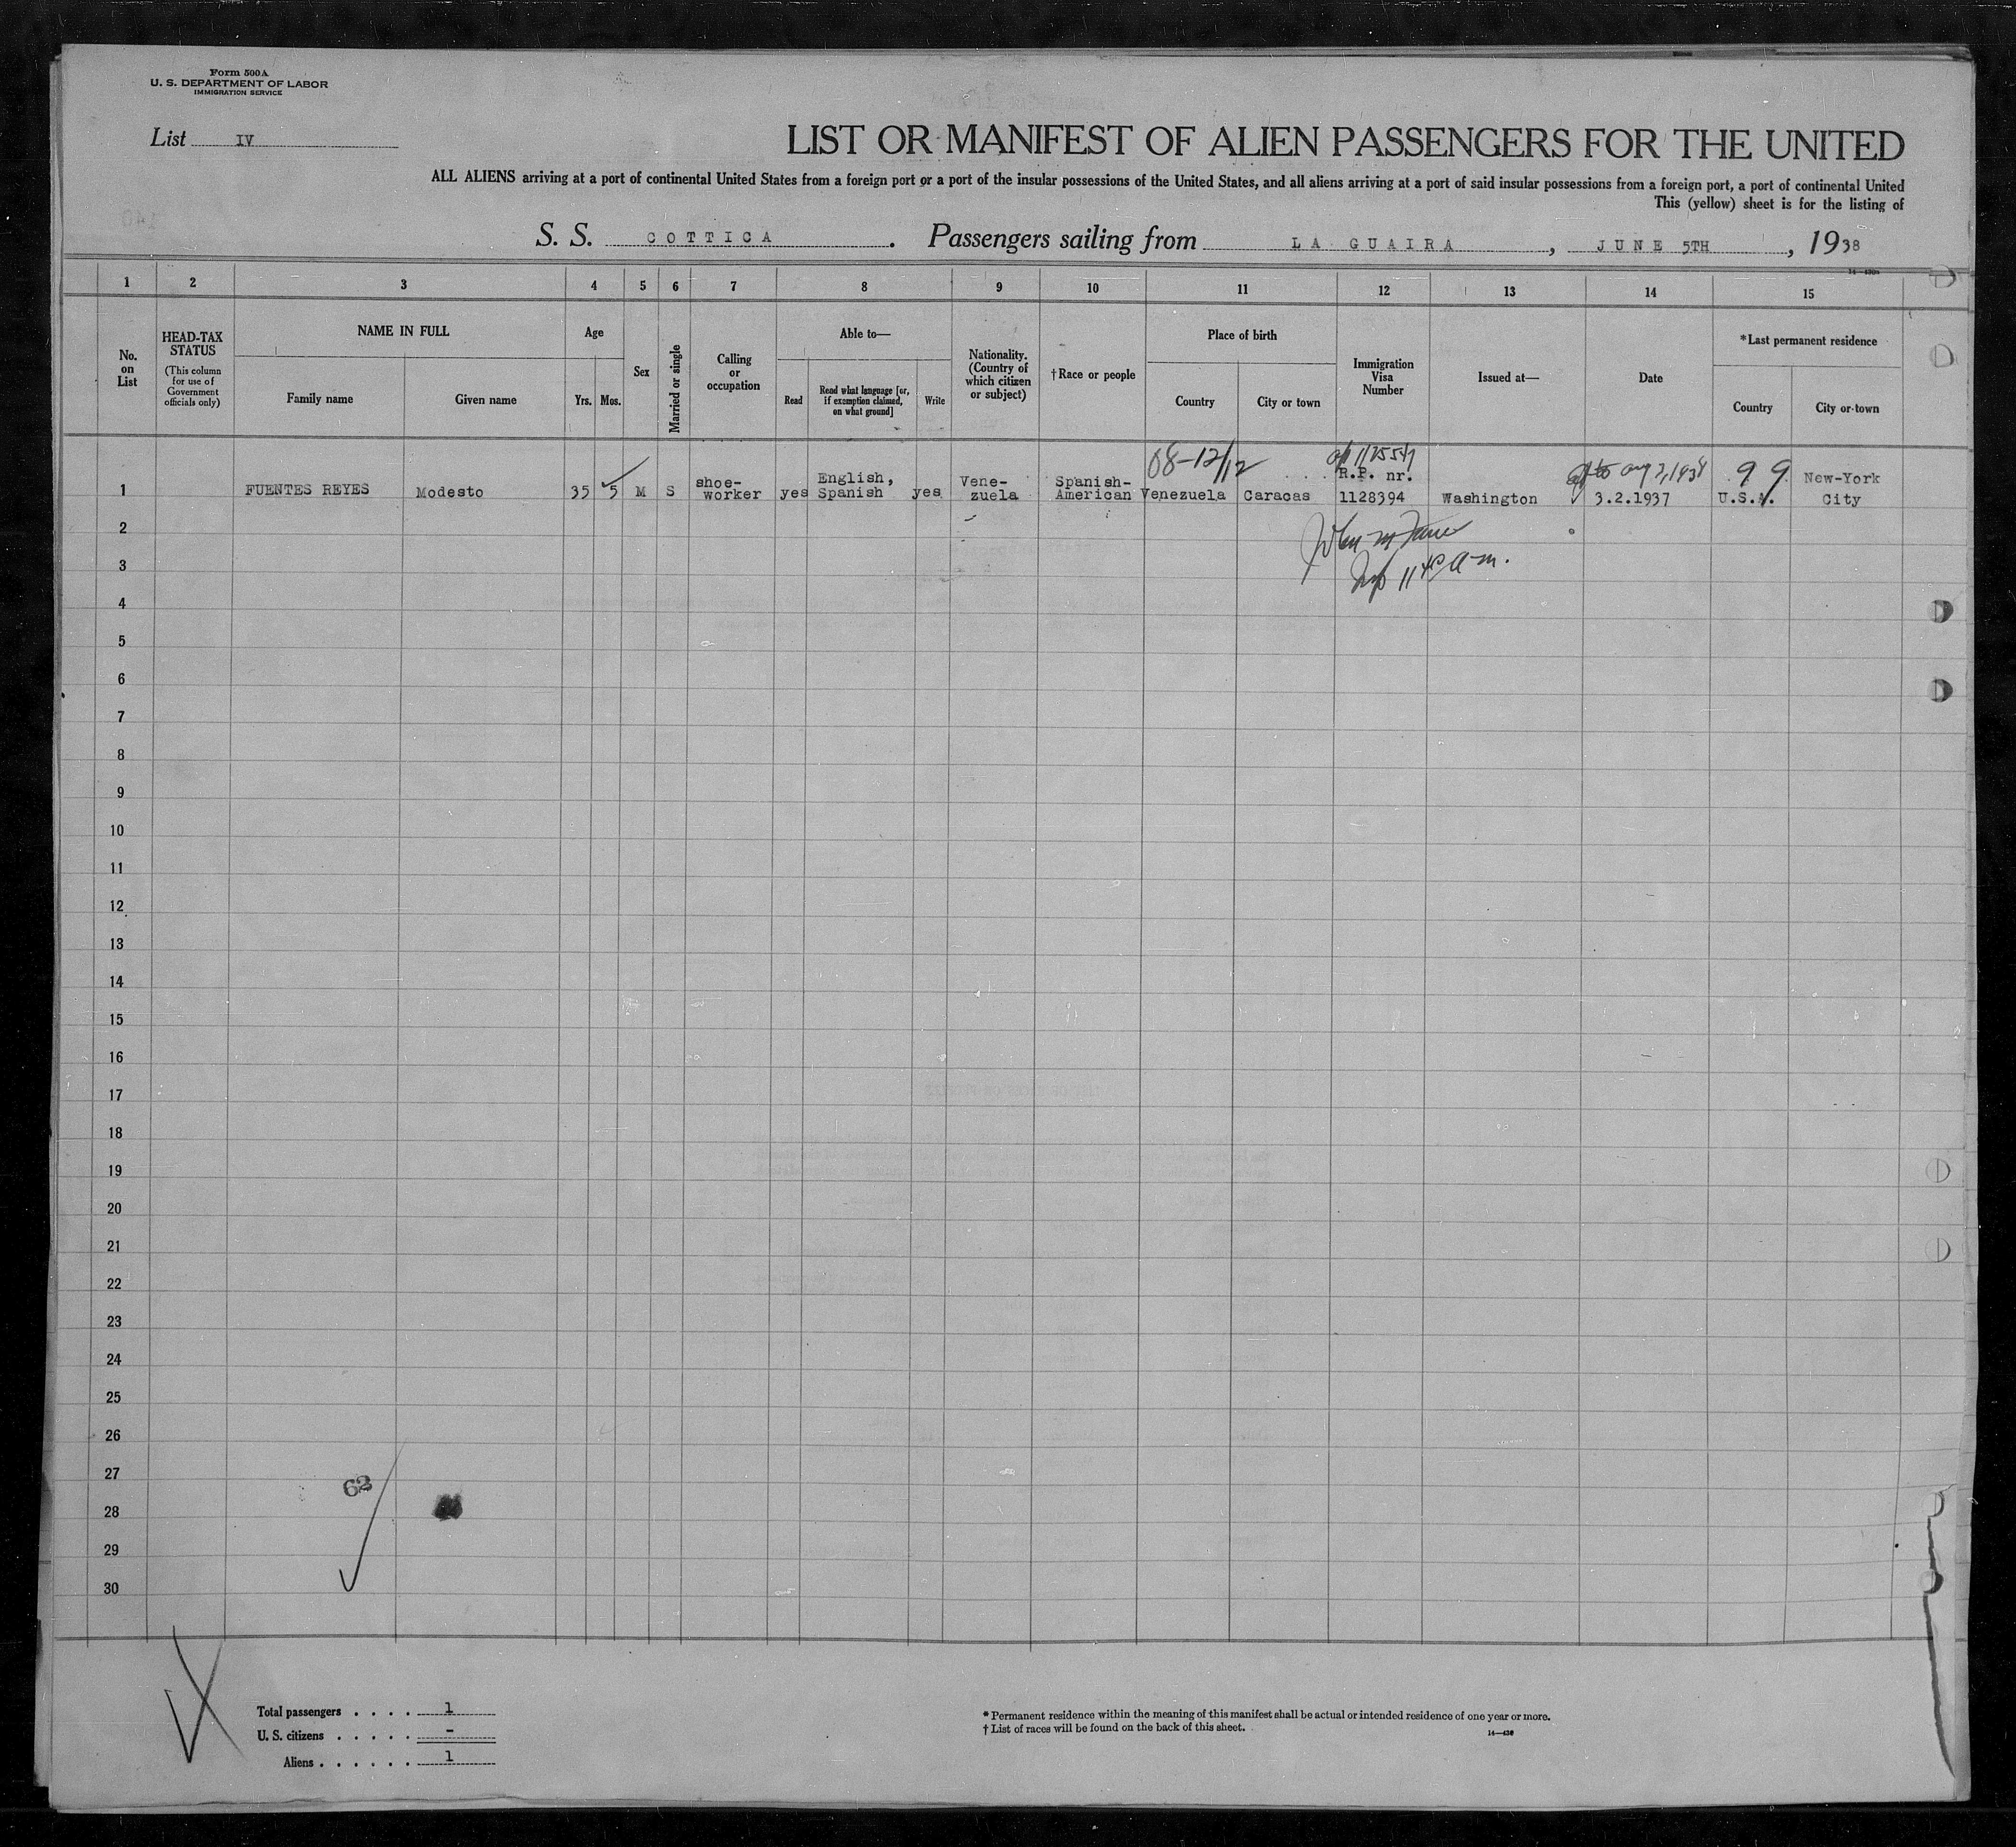 Form 500A
U. S. DEPARTMENT OF LABOR
IMMIGRATION SERVICE
List IV
LIST OR MANIFEST OF ALIEN PASSENGERS FOR THE UNITED
ALL ALIENS arriving at a port of continental United States from a foreign port or a port of the insular possessions of the United States, and all aliens arriving at a port of said insular possessions from a foreign port, a port of continental United
This (yellow) sheet is for the listing of
S. S. COTTICA. Passengers sailing from LA GUAIRA, JUNE 5TH, 1938
1 2 3 4 5 6 7 8 9 10 11 12 13 14 15
No. on List
HEAD-TAX STATUS
(This column for use of Government officials only)
NAME IN FULL
Family name
Given name
Age
Yrs.
Mos.
Sex
Married or single
Calling or occupation
Able to—
Read
Read what language [or, if exemption claimed, on what ground]
Write
Nationality. (Country of which citizen or subject)
†Race or people
Place of birth
Country
City or town
Immigration Visa Number
Issued at—
Date
*Last permanent residence
Country
City or town
08-12/12
1 FUENTES REYES Modesto 35 5 M S shoe-worker yes English, Spanish yes Vene-zuela Spanish-American Venezuela Caracas R.P. nr. 1128394 Washington 3.2.1937 U.S.A. New-York City
99
2
11 40 a-m.
3
4
5
6
7
8
9
10
11
12
13
14
15
16
17
18
19
20
21
22
23
24
25
26
27
62
28
29
30
Total passengers . . . . 1
U. S. citizens . . . . . -
Aliens . . . . . . 1
* Permanent residence within the meaning of this manifest shall be actual or intended residence of one year or more.
† List of races will be found on the back of this sheet.